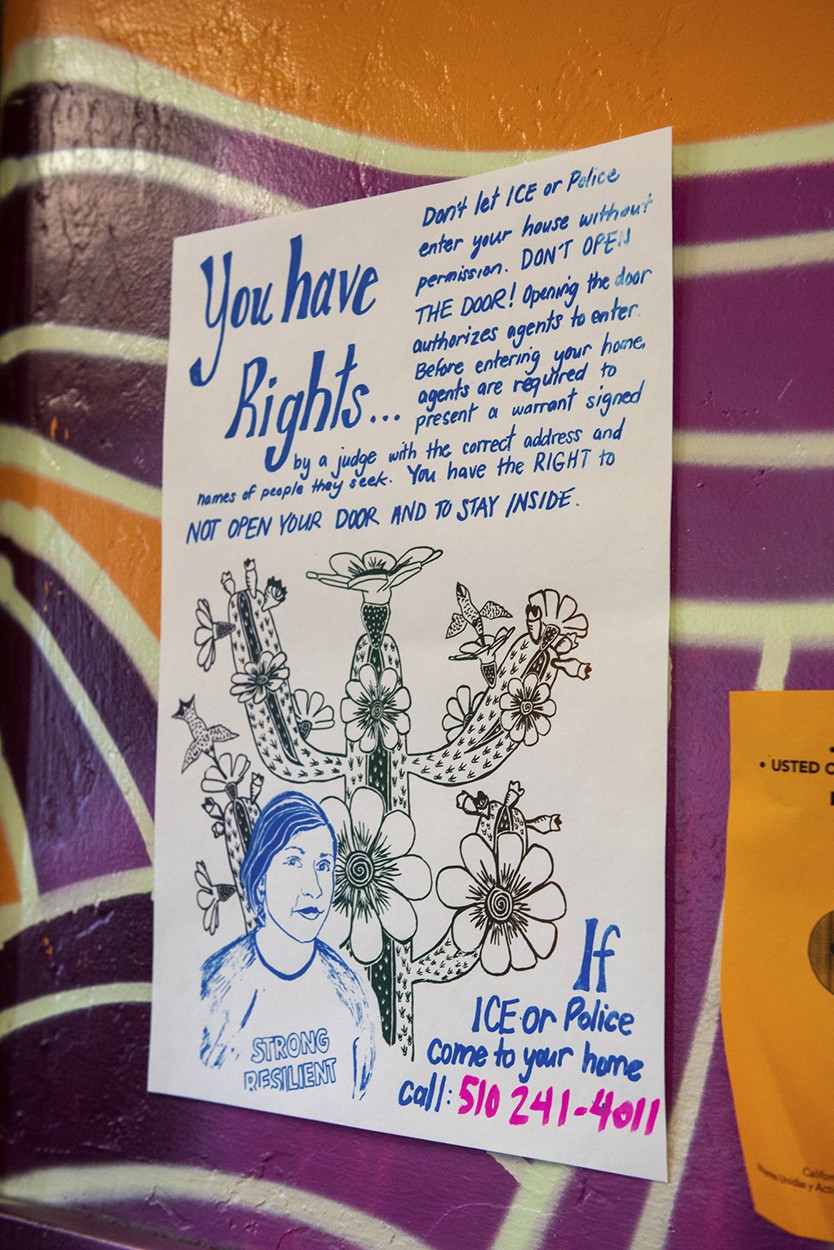 You have
Rights...
Don't let ICE or Police
enter your house without
permission. DON'T OPEN
THE DOOR! Opening the door
authorizes agents to enter.
Before entering your home,
agents are required to
present a warrant signed
by a judge with the correct address and
names of people they seek. You have the RIGHT to
NOT OPEN YOUR DOOR AND TO STAY INSIDE.
STRONG
RESILIENT
If
ICE or Police
come to your home
call: 510 241-4011
• USTED
Unidas y